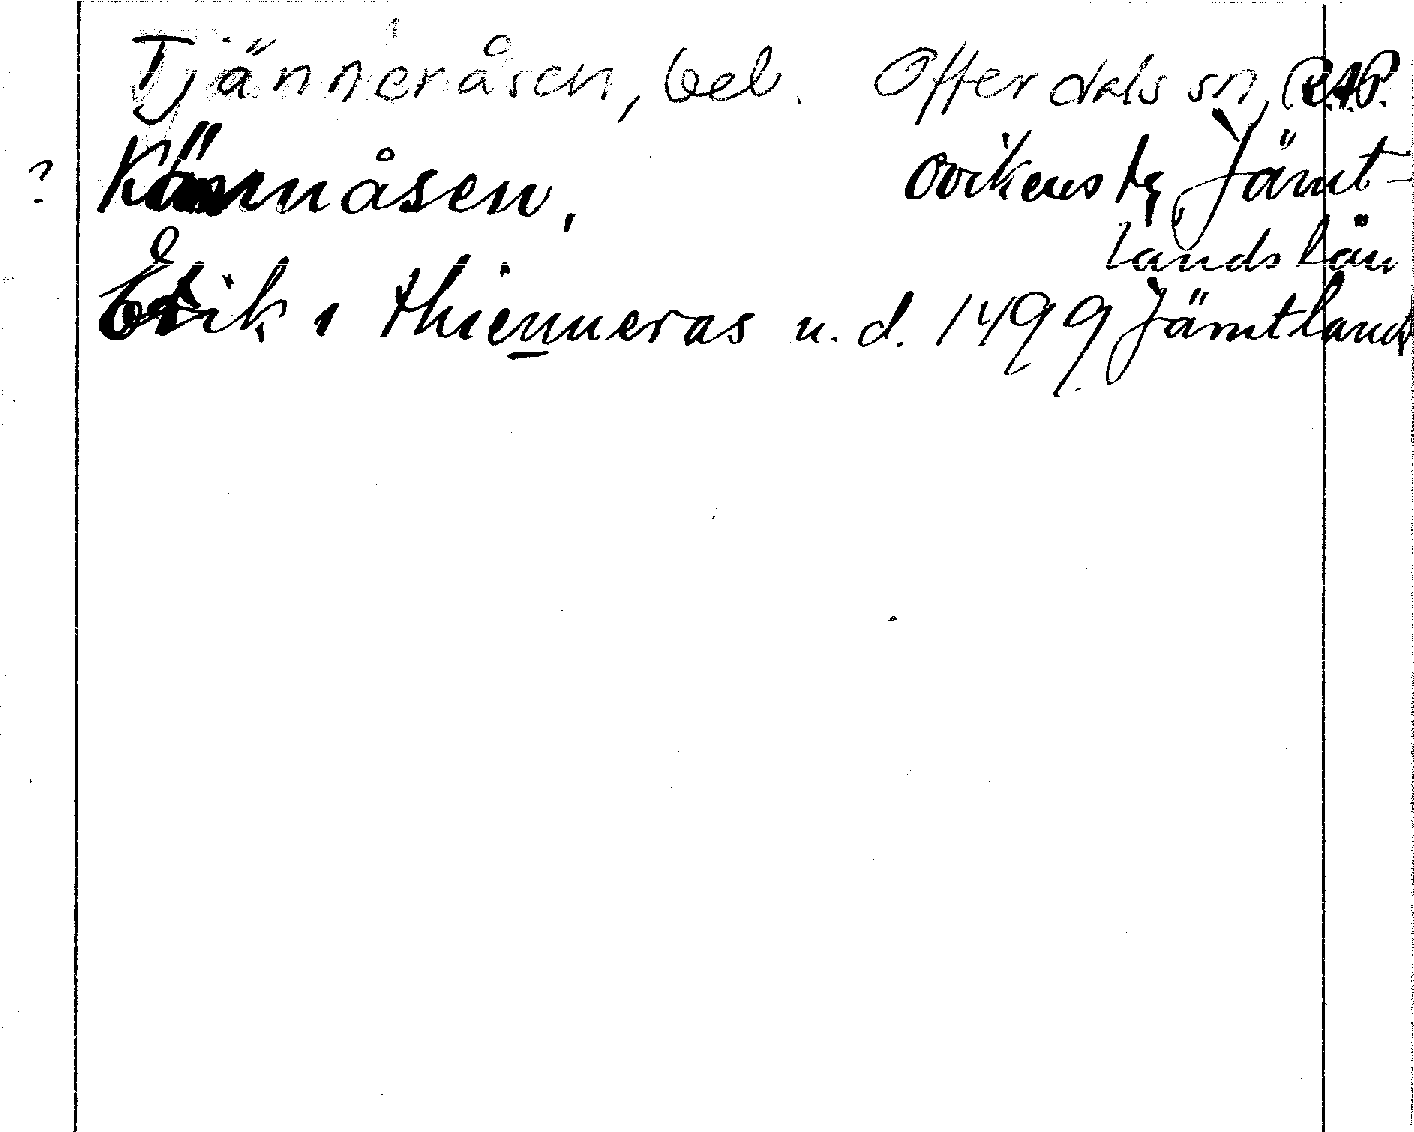 Tjänneråsen, beb. Offerdals sn, RAP.
? Kännåsen, Ovikens tg Jämt-
lands län
Erik i thienneras u. d. 1499 Jämtland